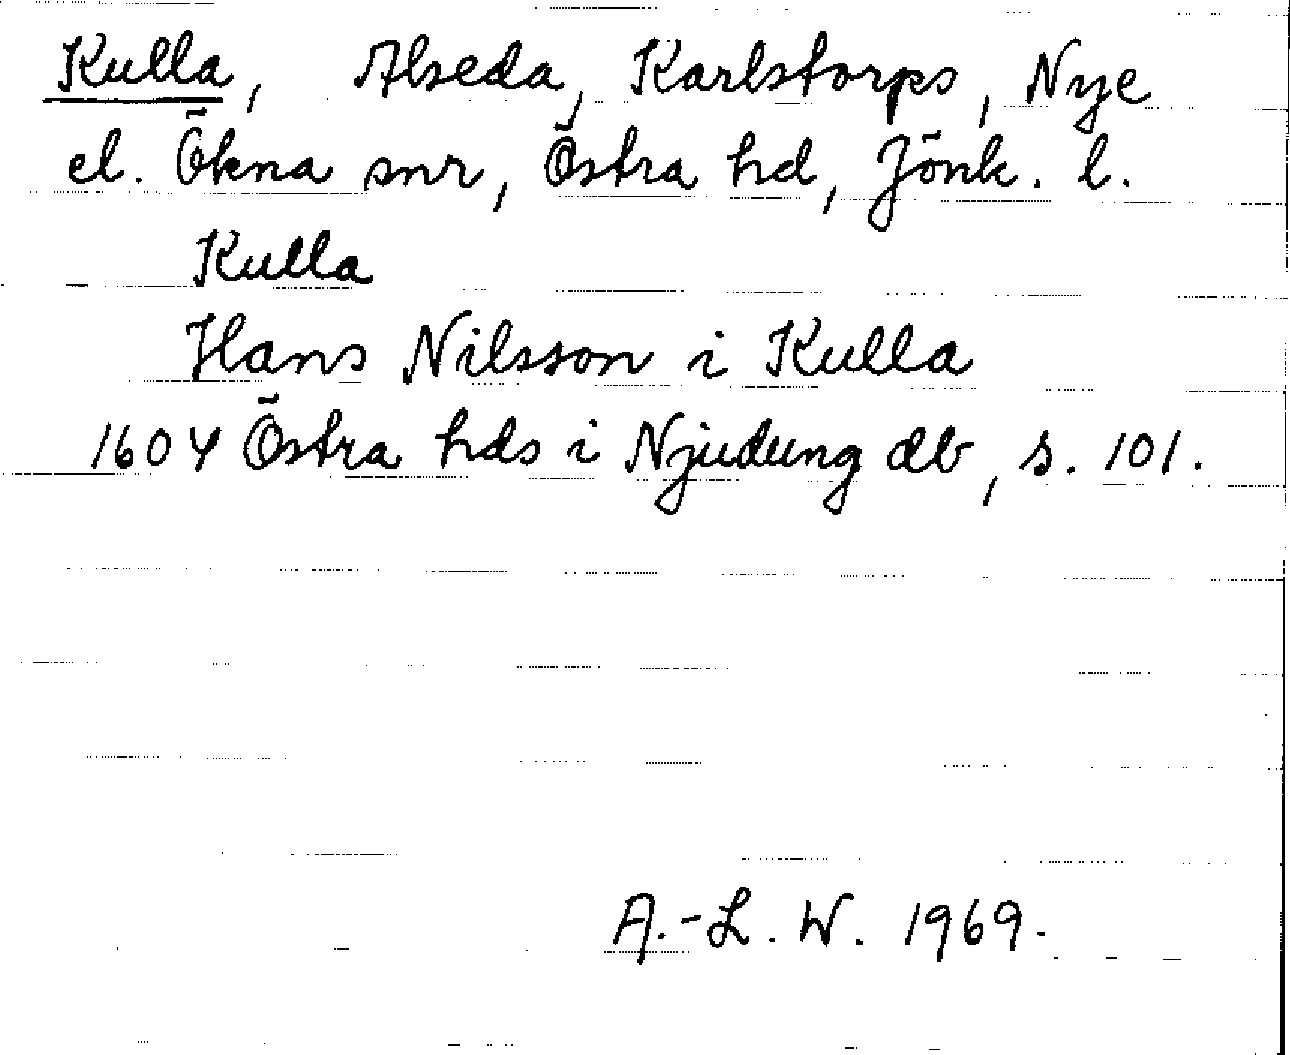 Kulla, Alseda, Karlstorps, Nye
el. Ökna snr, Östra hd, Jönk. l.
Kulla
Hans Nilsson i Kulla
1604 Östra hds i Njudung db, s. 101.
A.-L. W. 1969.